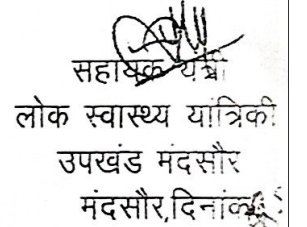 सहायक यंत्री
लोक स्वास्थ्य यांत्रिकी
उपखंड मंदसौर
मंदसौर,दिनांक